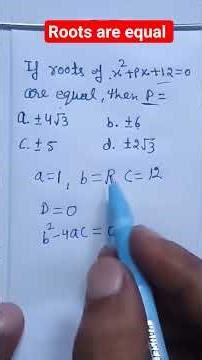 Roots are equal
If roots of x²+Px+12=0
are equal, then P=
a. ±4√3 b. ±6
c. ±5 d. ±2√3
a=1, b=P, c=12
D=0
b²-4ac=0